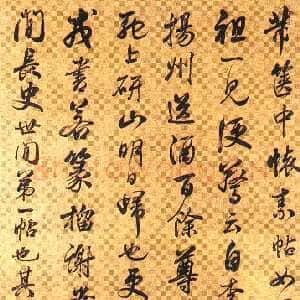 芾篋中懷素帖如
祖一見便驚云自李
揚州送酒百餘尊
馳上研山明日歸也更
戎書若篆籀謝
間長史世間第一帖也其